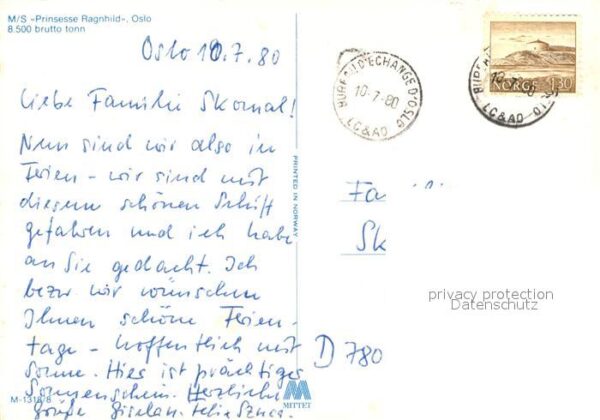 M/S «Prinsesse Ragnhild», Oslo
8.500 brutto tonn
Oslo 10.7.80
Liebe Familie Skomal!
Nun sind wir also in
Ferien - wir sind mit
diesem schönen Schiff
gefahren und ich habe
an Sie gedacht. Ich
bezw wir wünschen
Ihnen schöne Ferien-
tage - hoffentlich mit
Sonne. Hier ist prächtiger
Sonnenschein. Herzliche
Grüße
M-1318/8
PRINTED IN NORWAY
MITTET
BUREAU D'ECHANGE D'OSLO
10-7-80
LC&AO
NORGE 130
Fa
Sk
D 780
privacy protection
Datenschutz